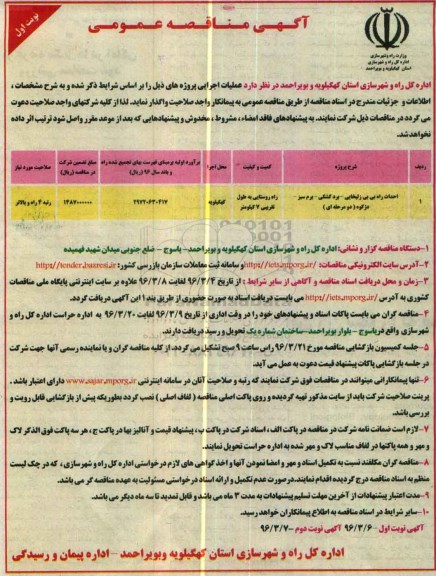 آگهی مناقصه عمومی
نوبت اول
وزارت راه و شهرسازی
اداره کل راه و شهرسازی
استان کهگیلویه و بویراحمد
اداره کل راه و شهرسازی استان کهگیلویه و بویراحمد در نظر دارد عملیات اجرایی پروژه های ذیل را بر اساس شرایط ذکر شده و به شرح مشخصات ،
اطلاعات و جزئیات مندرج در اسناد مناقصه از طریق مناقصه عمومی به پیمانکار واجد صلاحیت واگذار نماید. لذا از کلیه شرکتهای واجد صلاحیت دعوت
می گردد در مناقصات ذیل شرکت نمایند. به پیشنهادهای فاقد امضاء ، مشروط ، مخدوش و پیشنهادهایی که بعد از موعد مقرر واصل شود ترتیب اثر داده
نخواهد شد.
ردیف شرح پروژه کمیت و کیفیت محل اجرا برآورد اولیه برمبنای فهرست بهای تجمیع شده راه و باند سال ۹۶ (ریال) مبلغ تضمین شرکت در مناقصه (ریال) صلاحیت مورد نیاز
۱ احداث راه بی بی زلیخایی - برد کشکی - برم سبز - دژکوه ( دو مرحله ای ) راه روستایی به طول تقریبی ۷ کیلومتر کهگیلویه ۲۹۷۲۰۶۳۰۴۱۷ ۱۴۸۷۰۰۰۰۰۰ رتبه ۴ راه و بالاتر
۱-دستگاه مناقصه گزار و نشانی: اداره کل راه و شهرسازی استان کهگیلویه و بویراحمد- یاسوج - ضلع جنوبی میدان شهید فهمیده
۲-آدرس سایت الکترونیکی مناقصات: http//iets.mporg.ir/ و سامانه ثبت معاملات سازمان بازرسی کشور:
۳-زمان و محل دریافت اسناد مناقصه و آگاهی از سایر شرایط : از تاریخ ۹۶/۳/۴ لغایت ۹۶/۳/۸ علاوه بر سایت اینترنتی پایگاه ملی مناقصات
کشوری به آدرس http//iets.mporg.ir/ می بایست دریافت اسناد به صورت حضوری از طریق بند ۱ این آگهی دریافت گردد.
۴-مناقصه گران می بایست پاکات اسناد و پیشنهادهای خود را در وقت اداری از تاریخ ۹۶/۳/۹ لغایت ۹۶/۳/۲۰ به اداره حراست اداره کل راه و
شهرسازی واقع در یاسوج - بلوار بویراحمد-ساختمان شماره یک تحویل و رسید دریافت دارند.
۵-جلسه کمیسیون بازگشایی مناقصه مورخ ۹۶/۳/۲۱ راس ساعت ۹ صبح تشکیل می گردد. از کلیه مناقصه گران و یا نماینده رسمی آنها جهت شرکت
در جلسه بازگشایی پاکات پیشنهاد قیمت دعوت به عمل می آید.
۶-تنها پیمانکارانی میتوانند در مناقصات فوق شرکت نمایند که رتبه و صلاحیت آنان در سامانه اینترنتی www.sajar.mporg.ir دارای اعتبار باشد .
پرینت صلاحیت شرکت باید از سایت مذکور تهیه گردیده و روی پاکت اصلی مناقصه ( لفاف اصلی ) نصب گردد بطوریکه پیش از بازگشایی قابل رویت و
بررسی باشد.
۷-لازم است ضمانت نامه شرکت در مناقصه در پاکت الف ، اسناد شرکت در پاکت ب ، پیشنهاد قیمت و آنالیز بها در پاکت ج ، هر سه پاکت فوق الذکر لاک
و مهر و همه پاکتها در لفاف مناسب لاک و مهر شده به اداره حراست تحویل نمایند.
۸-مناقصه گران مکلفند نسبت به تکمیل اسناد و مهر و امضا نمودن آنها و اخذ گواهی های لازم درخواستی اداره کل راه و شهرسازی ، که در چک لیست
منظم به اسناد مناقصه درج گردیده اقدام نمایند. در صورت عدم تکمیل و ارائه اسناد درخواستی مسئولیت به عهده مناقصه گر می باشد.
۹-مدت اعتبار پیشنهادات از آخرین مهلت تسلیم پیشنهادات به مدت ۳ ماه می باشد و قابل تمدید تا سه ماه دیگر می باشد.
۱۰-سایر شرایط در اسناد مناقصه به اطلاع پیمانکاران خواهد رسید.
آگهی نوبت اول -۹۶/۳/۶ آگهی نوبت دوم -۹۶/۳/۷
اداره کل راه و شهرسازی استان کهگیلویه وبویراحمد - اداره پیمان و رسیدگی